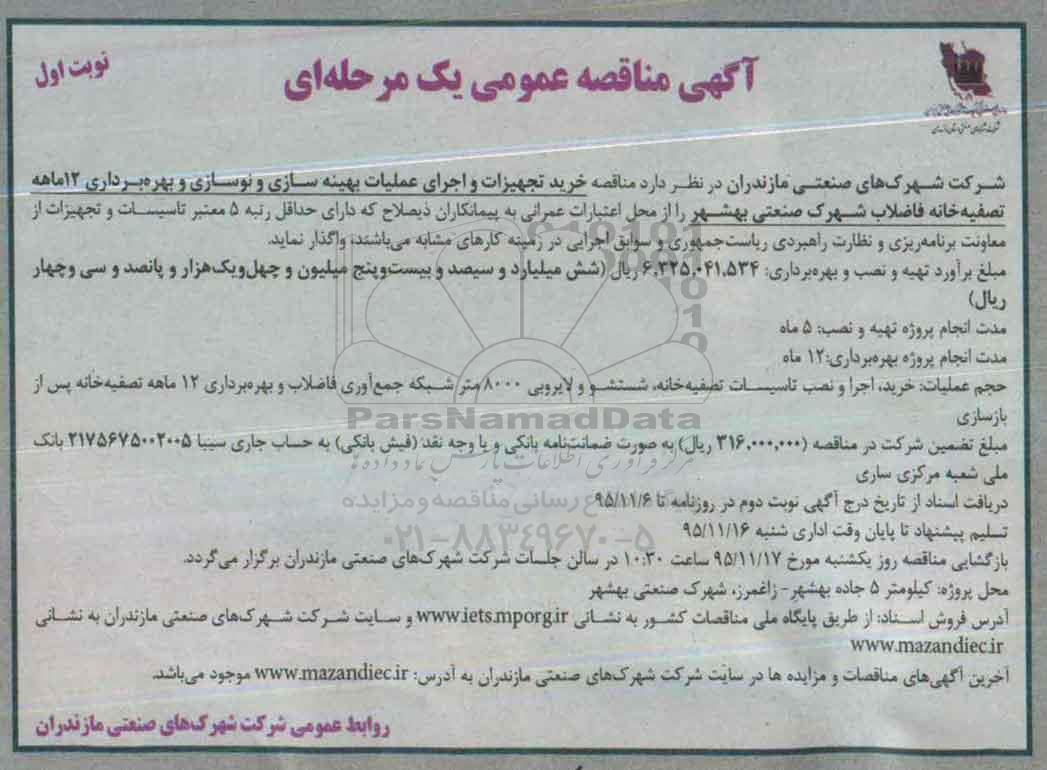 آگهی مناقصه عمومی یک مرحله‌ای
نوبت اول
شرکت شهرک‌های صنعتی مازندران در نظر دارد مناقصه خرید تجهیزات و اجرای عملیات بهینه سازی و نوسازی و بهره‌برداری ۱۲ماهه
تصفیه‌خانه فاضلاب شهرک صنعتی بهشهر را از محل اعتبارات عمرانی به پیمانکاران ذیصلاح که دارای حداقل رتبه ۵ معتبر تاسیسات و تجهیزات از
معاونت برنامه‌ریزی و نظارت راهبردی ریاست‌جمهوری و سوابق اجرایی در زمینه کارهای مشابه می‌باشند، واگذار نماید.
مبلغ برآورد تهیه و نصب و بهره‌برداری: ۶,۳۲۵,۰۴۱,۵۳۴ ریال (شش میلیارد و سیصد و بیست‌وپنج میلیون و چهل‌ویک‌هزار و پانصد و سی وچهار
ریال)
مدت انجام پروژه تهیه و نصب: ۵ ماه
مدت انجام پروژه بهره‌برداری:۱۲ ماه
حجم عملیات: خرید، اجرا و نصب تاسیسات تصفیه‌خانه، شستشو و لایروبی ۸۰۰۰ متر شبکه جمع‌آوری فاضلاب و بهره‌برداری ۱۲ ماهه تصفیه‌خانه پس از
بازسازی
ParsNamadData
مبلغ تضمین شرکت در مناقصه (۳۱۶,۰۰۰,۰۰۰ ریال) به صورت ضمانت‌نامه بانکی و یا وجه نقد (فیش بانکی) به حساب جاری سیبا ۲۱۷۵۶۷۵۰۰۲۰۰۵ بانک
ملی شعبه مرکزی ساری
دریافت اسناد از تاریخ درج آگهی نوبت دوم در روزنامه تا ۹۵/۱۱/۶
رسانی مناقصه و مزایده
تسلیم پیشنهاد تا پایان وقت اداری شنبه ۹۵/۱۱/۱۶
۰۲۱-۸۸۳۴۹۶۷۰-۵
بازگشایی مناقصه روز یکشنبه مورخ ۹۵/۱۱/۱۷ ساعت ۱۰:۳۰ در سالن جلسات شرکت شهرک‌های صنعتی مازندران برگزار می‌گردد.
محل پروژه: کیلومتر ۵ جاده بهشهر- زاغمرز، شهرک صنعتی بهشهر
آدرس فروش اسناد: از طریق پایگاه ملی مناقصات کشور به نشانی www.iets.mporg.ir و سایت شرکت شهرک‌های صنعتی مازندران به نشانی
www.mazandiec.ir
آخرین آگهی‌های مناقصات و مزایده ها در سایت شرکت شهرک‌های صنعتی مازندران به آدرس: www.mazandiec.ir موجود می‌باشد.
روابط عمومی شرکت شهرک‌های صنعتی مازندران